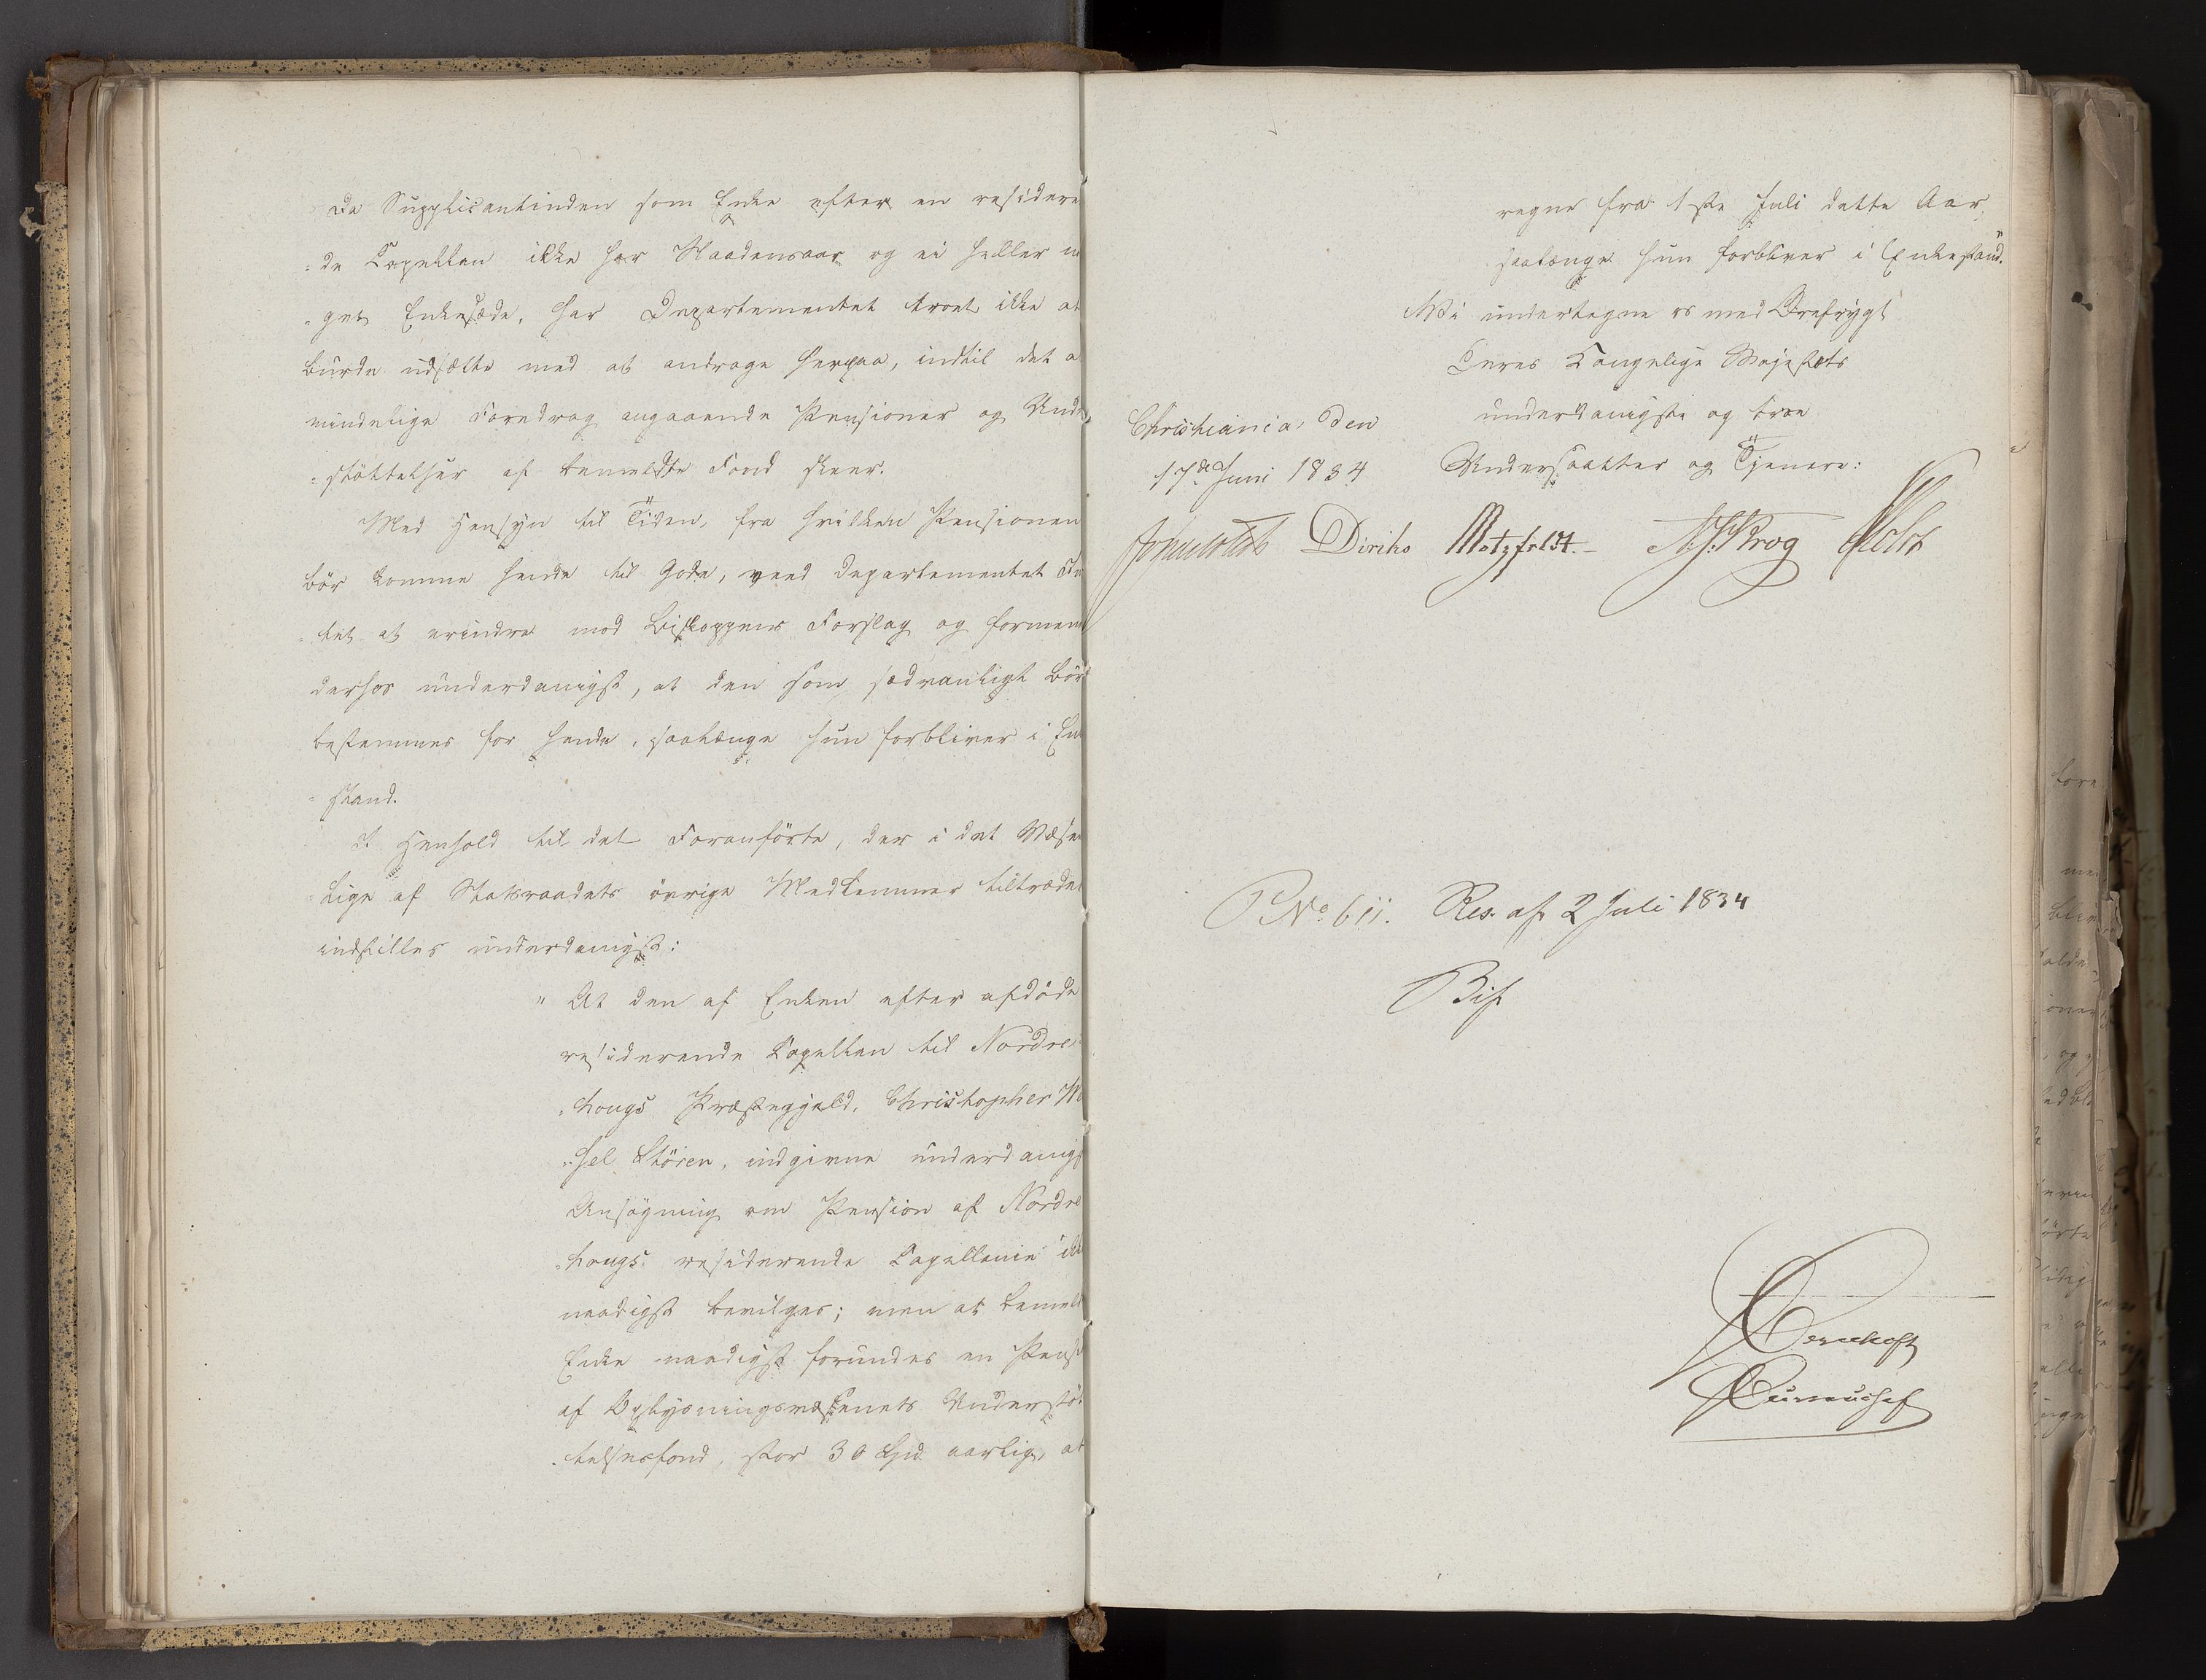 Da Supplicantinden som Enke efter en residere
=de Capellan ikke har Naadensaar og ei heller n
=get Enkesæde, har Departementet troet ikke at
burde udsætte med at andrage herpaa, indtil det a
mindelige Foredrag angaaende Pensioner og Unde
=støttelser af bemeldte Fond skeer.
Med Hensyn til Tiden, fra hvilken Pensionen
bör komme hende til Gode, veed Departementet In
tet at erindre mod Biskoppens Forslag og formene
derhos underdanigst, at den som sædvanligt bör
bestemmes for hende, saalænge hun forbliver i En
=stand.
I Henhold til det Foranförte, der i det Væsen
=lige af Statsraadets övrige Medlemmer tiltrædes
indstilles underdanigst:
" At den af Enken efter afdöde
residerende Capellan til Nordre
=hougs Præstegjeld, Christopher M
=sel Stören, indgivne underdanigs
Ansögning om Pension af Nordre
=hougs residerende Capellanie ikk
naadigst bevilges; men at bemeld
Enke naadigst forundes en Pensi
af Oplysningsvæsenets Understöt
=telsesfond, stor 30 Spd. aarlig, at
regne fra 1ste Juli dette Aar,
saalænge hun forbliver i Enkestand.
Vi undertegne os med Ærefrygt
Deres Kongelige Majestæts
underdanigste og troe
Undersaatter og Tjenere:
Christiania, den
17de Juni 1834
Diriks Motzfeldt. Krog Holst
PNo. 611. Res. af 2 Juli 1834
Bif